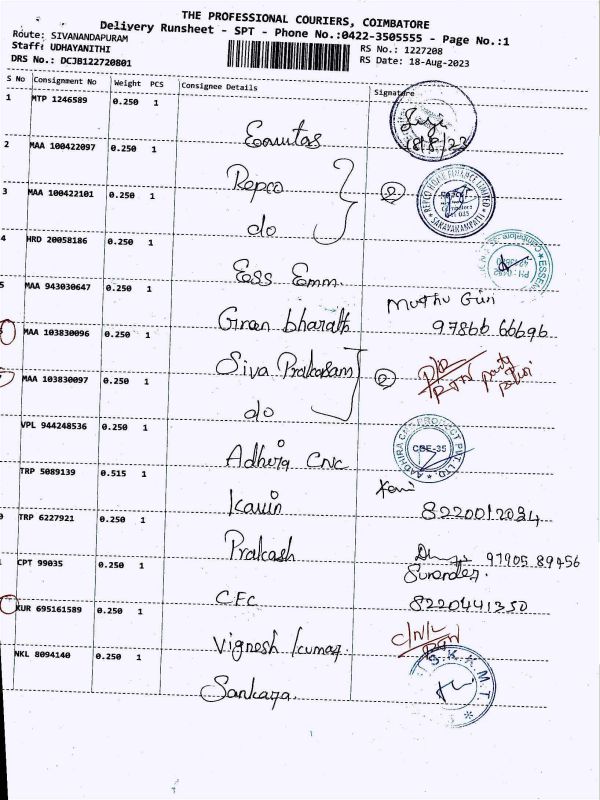 THE PROFESSIONAL COURIERS, COIMBATORE
Delivery Runsheet - SPT - Phone No.:0422-3505555 - Page No.:1
Route: SIVANANDAPURAM
Staff: UDHAYANITHI
DRS No.: DCJB122720801
RS No.: 1227208
RS Date: 18-Aug-2023
S No Consignment No Weight PCS Consignee Details Signature
1 MTP 1246589 0.250 1
Equitas
18/8/23
2 MAA 100422097 0.250 1
Repco
2
REPCO HOME FINANCE LIMITED
SARAVANAMPATTI
3 MAA 100422101 0.250 1
do
4 HRD 20058186 0.250 1
Ess Emm.
5 MAA 943030647 0.250 1
Green bharath
Muthu Guri
97866 66696
MAA 103830096 0.250 1
Siva Prakasam
2
RTN party
MAA 103830097 0.250 1
do
VPL 944248536 0.250 1
Adhira CNC
AADHIRA CNC PRODUCT PVT LTD.
CBE-35
TRP 5089139 0.515 1
Kavin
8220012034
TRP 6227921 0.250 1
Prakash
97905 89456
CPT 99035 0.250 1
CFC
Surander.
8220441350
KUR 695161589 0.250 1
Vignesh kumar.
C/N/L
RTN
NKL 8094140 0.250 1
Sankara.
S.K.K.M.T.